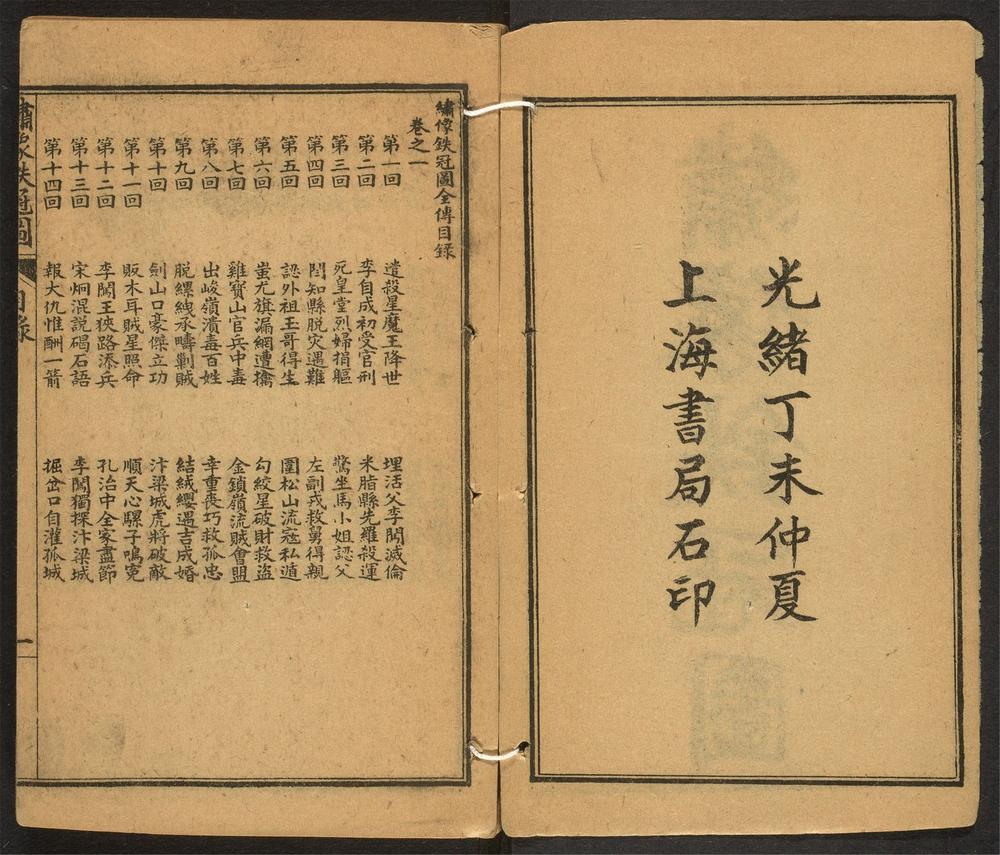 光緒丁未仲夏
上海書局石印
繡像鉄冠圖全傳目錄
卷之一
第一回 遣殺星魔王降世 埋活父李闖滅倫
第二回 李自成初受官刑 米脂縣先羅殺運
第三回 死皇堂烈婦捐軀 驚坐馬小姐認父
第四回 閆知縣脫灾遇難 左副戎救舅得親
第五回 認外祖玉哥得生 圍松山流寇私遁
第六回 蚩尤旗漏網遭擒 勾絞星破財救盜
第七回 雞寶山官兵中毒 金鎖嶺流賊會盟
第八回 出峻嶺潰毒百姓 幸重喪巧救孤忠
第九回 脫縲絏承疇剿賊 結絨纓遇吉成婚
第十回 劍山口豪傑立功 汴梁城虎將破敵
第十一回 販木耳賊星照命 順天心騾子鳴寃
第十二回 李闖王狹路添兵 孔治中全家盡節
第十三回 宋炯混説碣石語 李闖獨探汴梁城
第十四回 報大仇惟酬一箭 掘岔口自灌孤城
繡像鉄冠圖 目錄 一